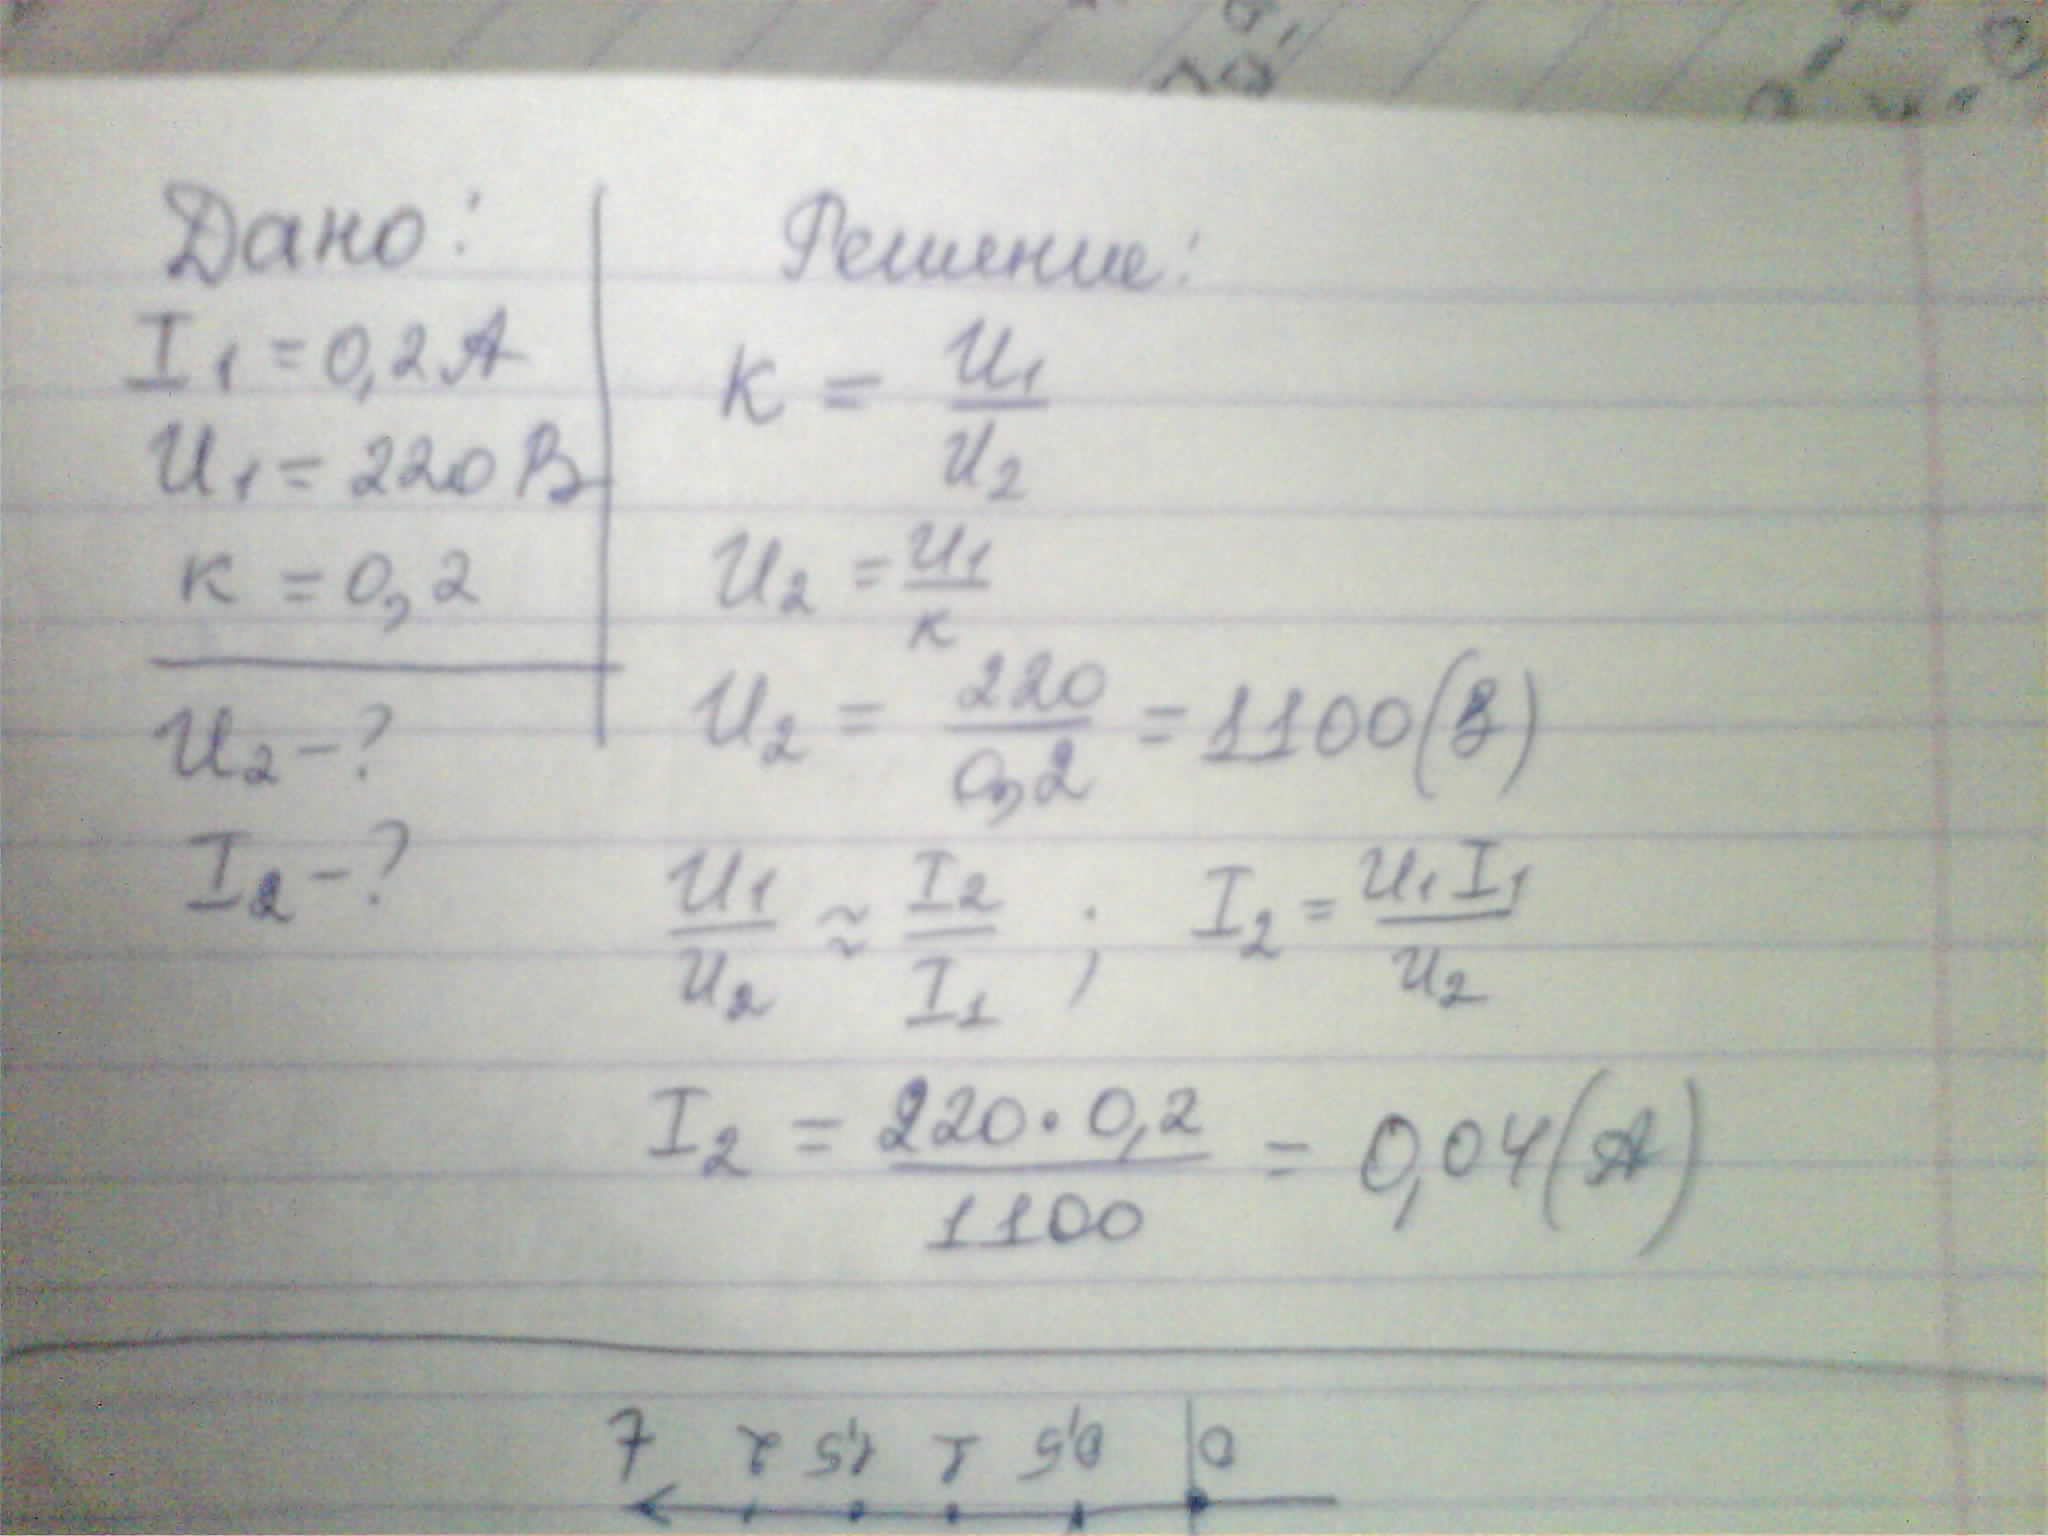 Дано:
I1 = 0,2 А
U1 = 220 В
к = 0,2
U2 - ?
I2 - ?
Решение:
к = U1/U2
U2 = U1/к
U2 = 220/0,2 = 1100 (В)
U1/U2 ≈ I2/I1 ; I2 = U1 I1/U2
I2 = 220 · 0,2/1100 = 0,04 (А)
0 0,5 1 1,5 2 t